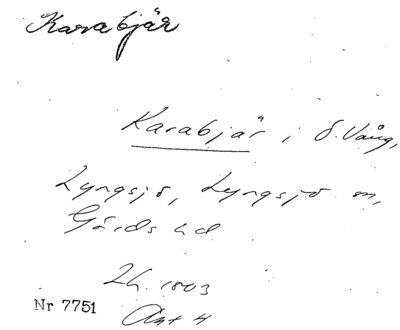 Karabjär
Karabjär i Ö. Vång,
Lyngsjö, Lyngsjö sn,
Gärds hd
Lh. 1803
Nr 7751
Akt 4